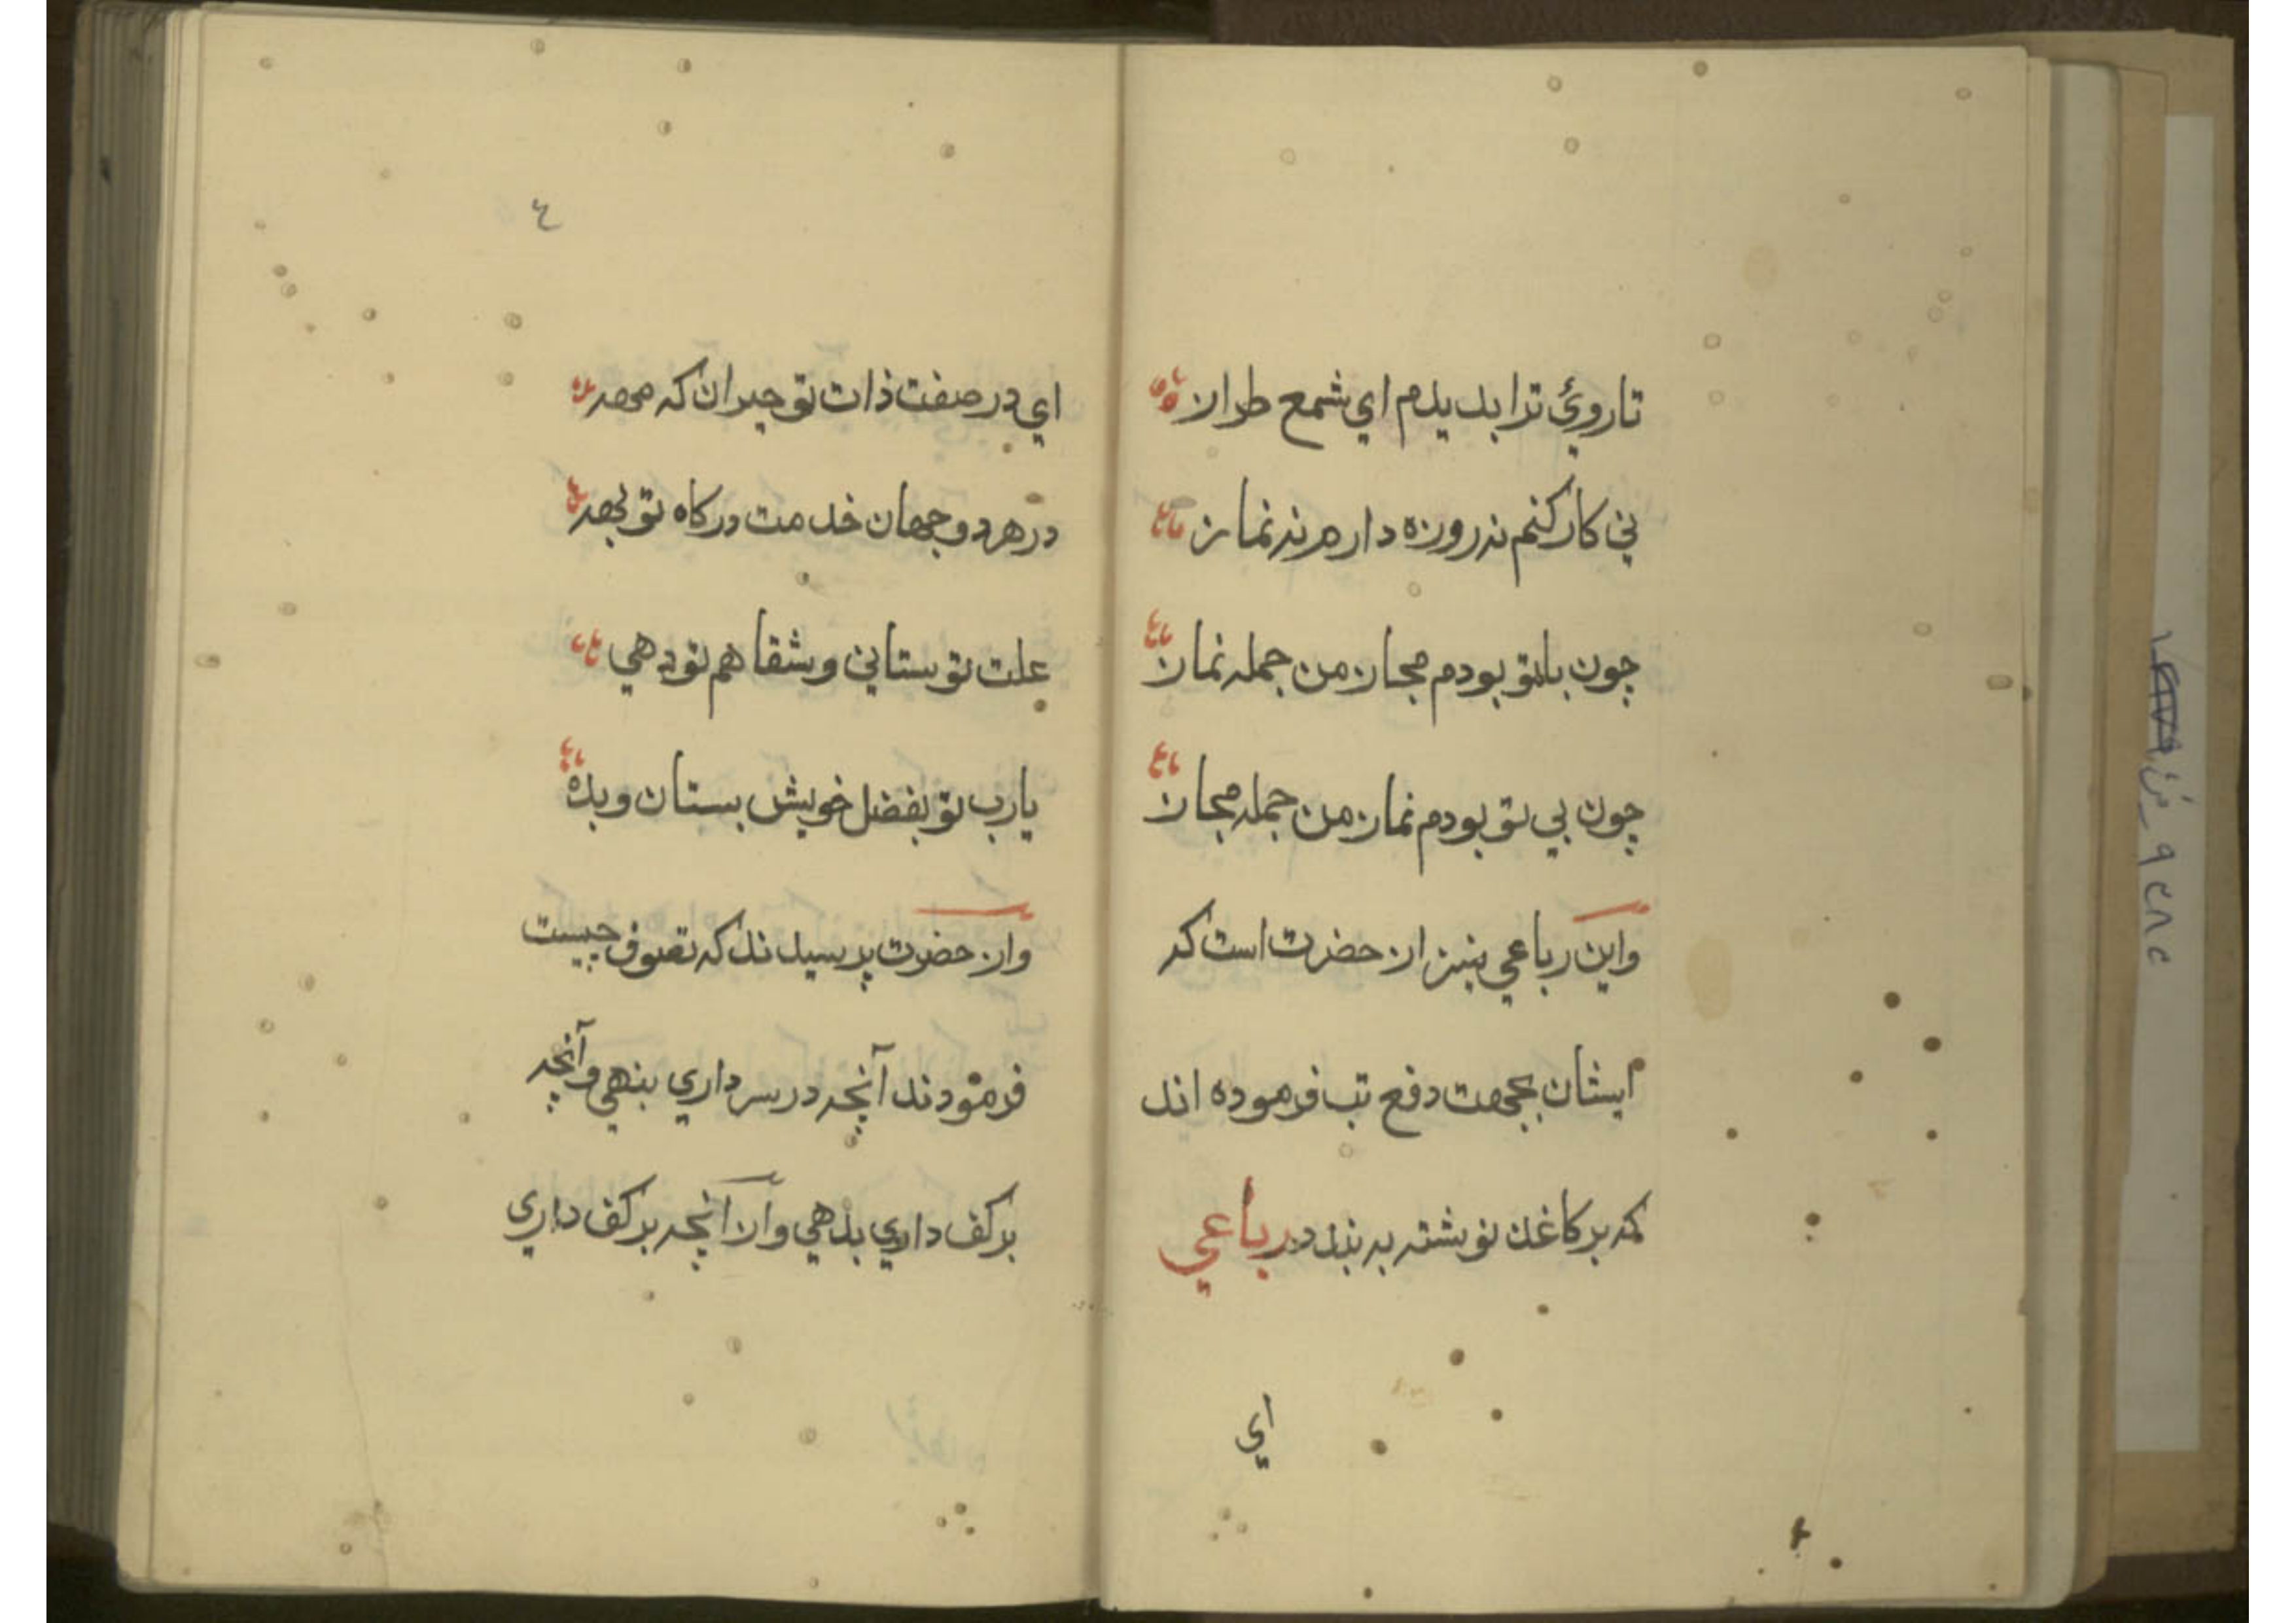 تا روئ ترا بدیدم اي شمع طراز
ني کار کنم نه روزه دارم نه نماز
چون باتو بودم مجاز من جمله نماز
چون بي تو بودم نماز من جمله مجاز
واین رباعي نیز از حضرت است که
ایشان بجهت دفع تب فرموده اند
که بر کاغذ نوشته به بندد رباعي
اي
٤
اي در صفت ذات تو حیران که ومه
در هر دو جهان خدمت درکاه تو به
علت تو ستاني وشفا هم تو دهي
یارب تو بفضل خویش بستان وبده
واز حضرت پرسیدند که تصوف چیست
فرمودند آنچه در سر داري بنهي وآنچه
بر کف داري بدهي واز آنچه بر کف داري